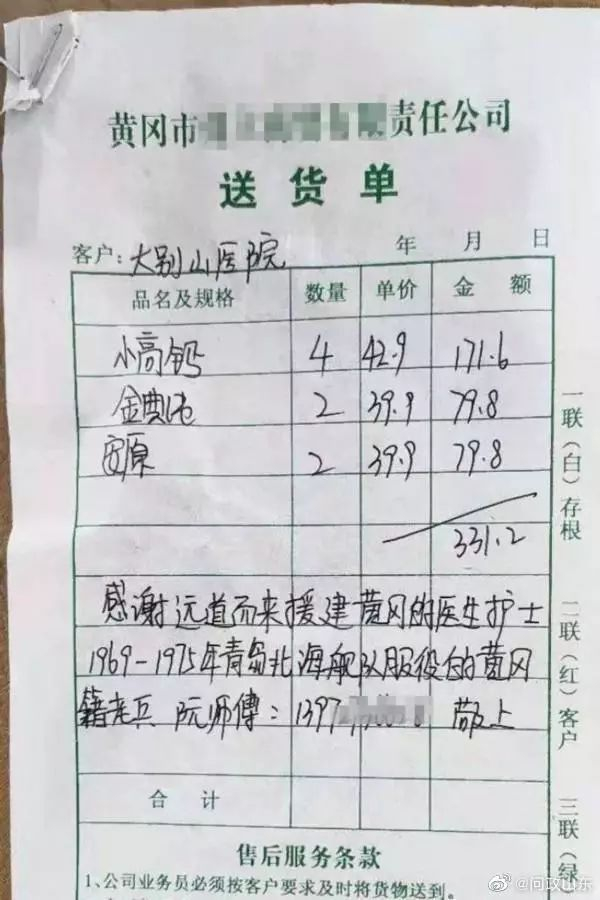 黄冈市 责任公司
送货单
客户: 大别山医院 年 月 日
品名及规格 数量 单价 金额
小高钙 4 42.9 171.6
金典 2 39.9 79.8
安原 2 39.9 79.8
331.2
感谢远道而来援建黄冈的医生护士
1969-1975年青岛北海舰队服役的黄冈
籍老兵 阮师傅: 1397 敬上
合计
售后服务条款
1、公司业务员必须按客户要求及时将货物送到。
一联(白)存根 二联(红)客户 三联(绿)
@问政山东